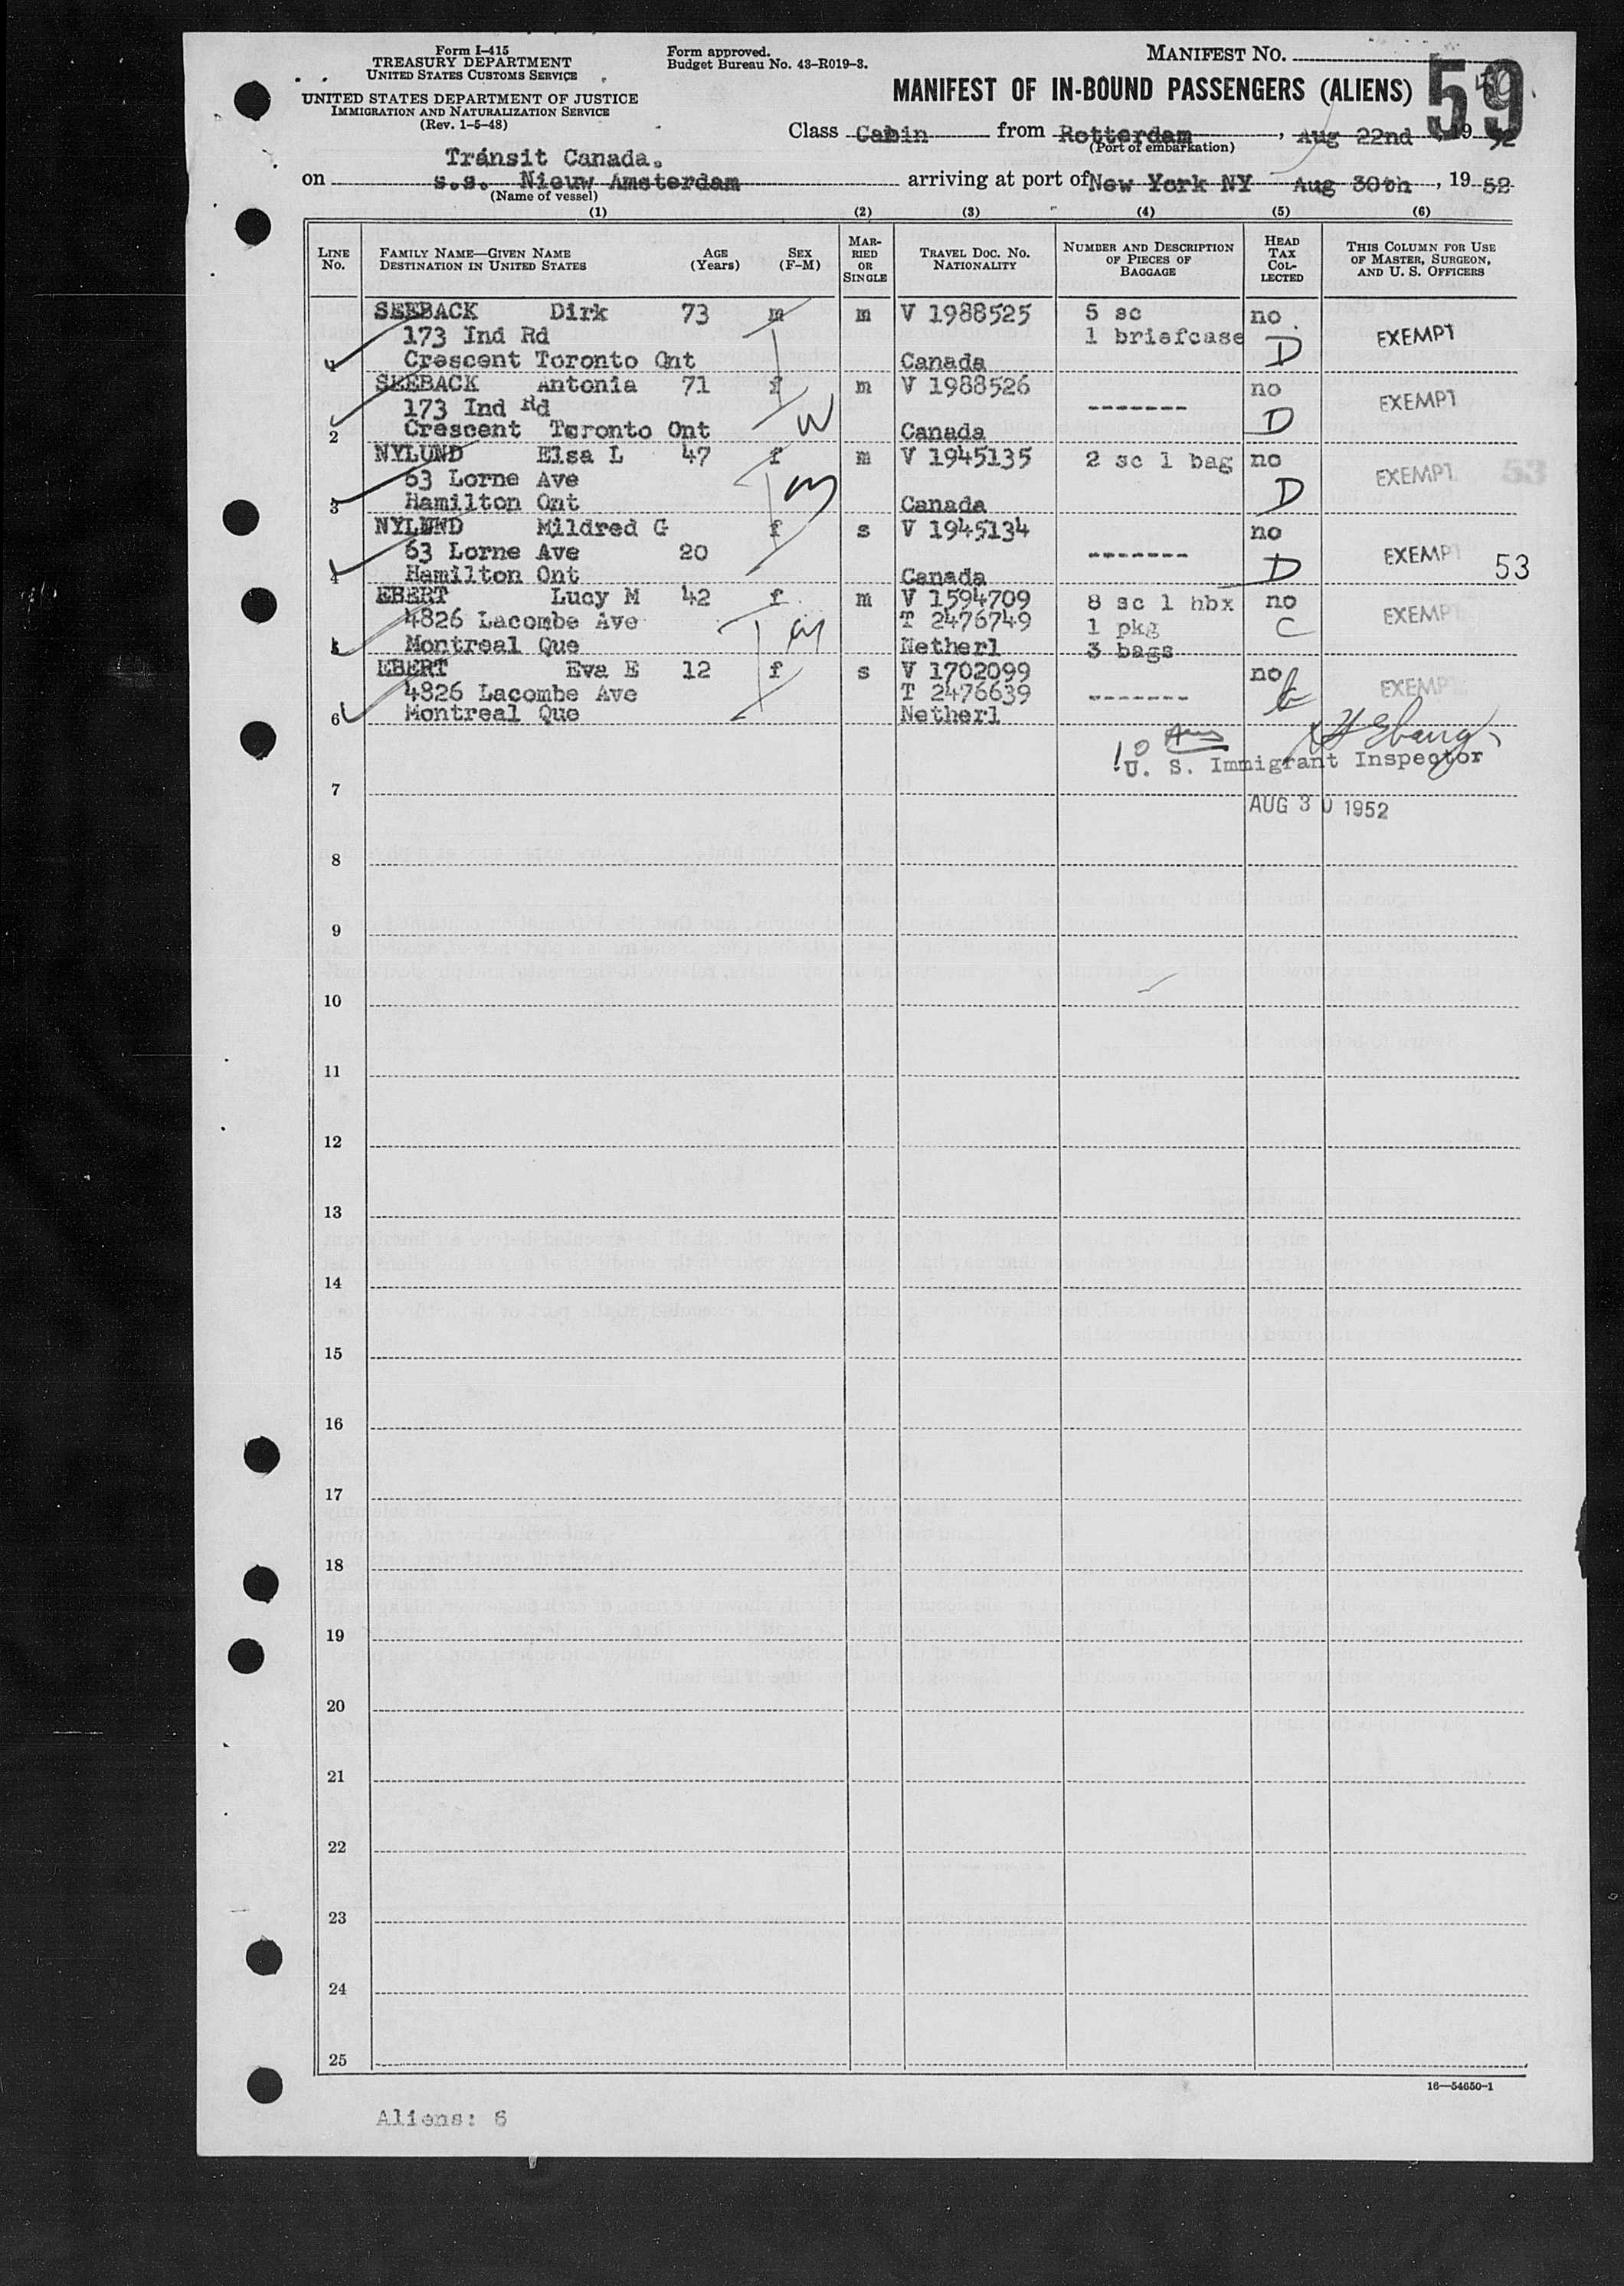 Form I-415
TREASURY DEPARTMENT
UNITED STATES CUSTOMS SERVICE
UNITED STATES DEPARTMENT OF JUSTICE
IMMIGRATION AND NATURALIZATION SERVICE
(Rev. 1-5-48)
Form approved.
Budget Bureau No. 43-R019-3.
MANIFEST NO.
59
MANIFEST OF IN-BOUND PASSENGERS (ALIENS)
Class Cabin from Rotterdam, Aug 22nd, 19 52
(Port of embarkation)
Transit Canada.
on s.s. Nieuw Amsterdam arriving at port of New York NY Aug 30th, 19 52
(Name of vessel)
(1) (2) (3) (4) (5) (6)
LINE No.
FAMILY NAME—GIVEN NAME
DESTINATION IN UNITED STATES
AGE (Years)
SEX (F-M)
MARRIED OR SINGLE
TRAVEL DOC. NO.
NATIONALITY
NUMBER AND DESCRIPTION OF PIECES OF BAGGAGE
HEAD TAX COLLECTED
THIS COLUMN FOR USE OF MASTER, SURGEON, AND U. S. OFFICERS
SEEBACK Dirk 73 m m V 1988525 5 sc no
173 Ind Rd 1 briefcase EXEMPT
1 Crescent Toronto Ont Canada D
SEEBACK Antonia 71 f m V 1988526 no
173 Ind Rd ------- EXEMPT
2 Crescent Toronto Ont W Canada D
NYLUND Elsa L 47 f m V 1945135 2 sc 1 bag no
63 Lorne Ave EXEMPT 53
3 Hamilton Ont Canada D
NYLUND Mildred G f s V 1945134 no
63 Lorne Ave 20 ------- EXEMPT 53
4 Hamilton Ont Canada D
EBERT Lucy M 42 f m V 1594709 8 sc 1 hbx no
4826 Lacombe Ave T 2476749 1 pkg C EXEMPT
5 Montreal Que Netherl 3 bags
EBERT Eva E 12 f s V 1702099 no
4826 Lacombe Ave T 2476639 ------- EXEMPT
6 Montreal Que Netherl
U. S. Immigrant Inspector
7
AUG 30 1952
8
9
10
11
12
13
14
15
16
17
18
19
20
21
22
23
24
25
16—54650-1
Aliens: 6